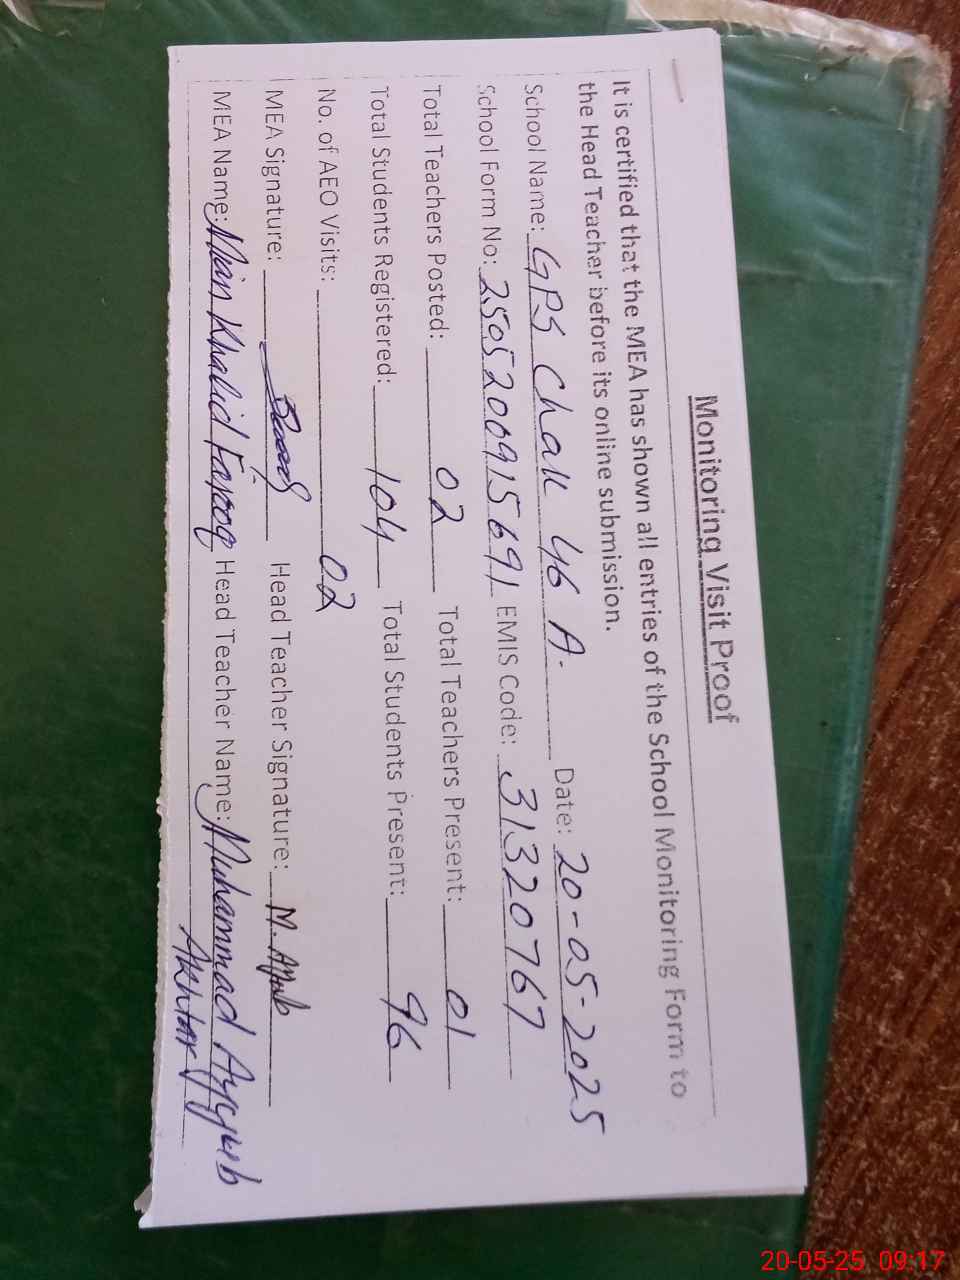 Monitoring Visit Proof
It is certified that the MEA has shown all entries of the School Monitoring Form to
the Head Teacher before its online submission.
School Name: GPS Chak 46 A. Date: 20-05-2025
School Form No: 25052009156691 EMIS Code: 31320767
Total Teachers Posted: 02 Total Teachers Present: 01
Total Students Registered: 104 Total Students Present: 96
No. of AEO Visits: 02
MEA Signature: Head Teacher Signature: M. Ayub
MEA Name: Mian Khalid Farooq Head Teacher Name: Muhammad Ayyub
Akhtar
20-05-25 09:17